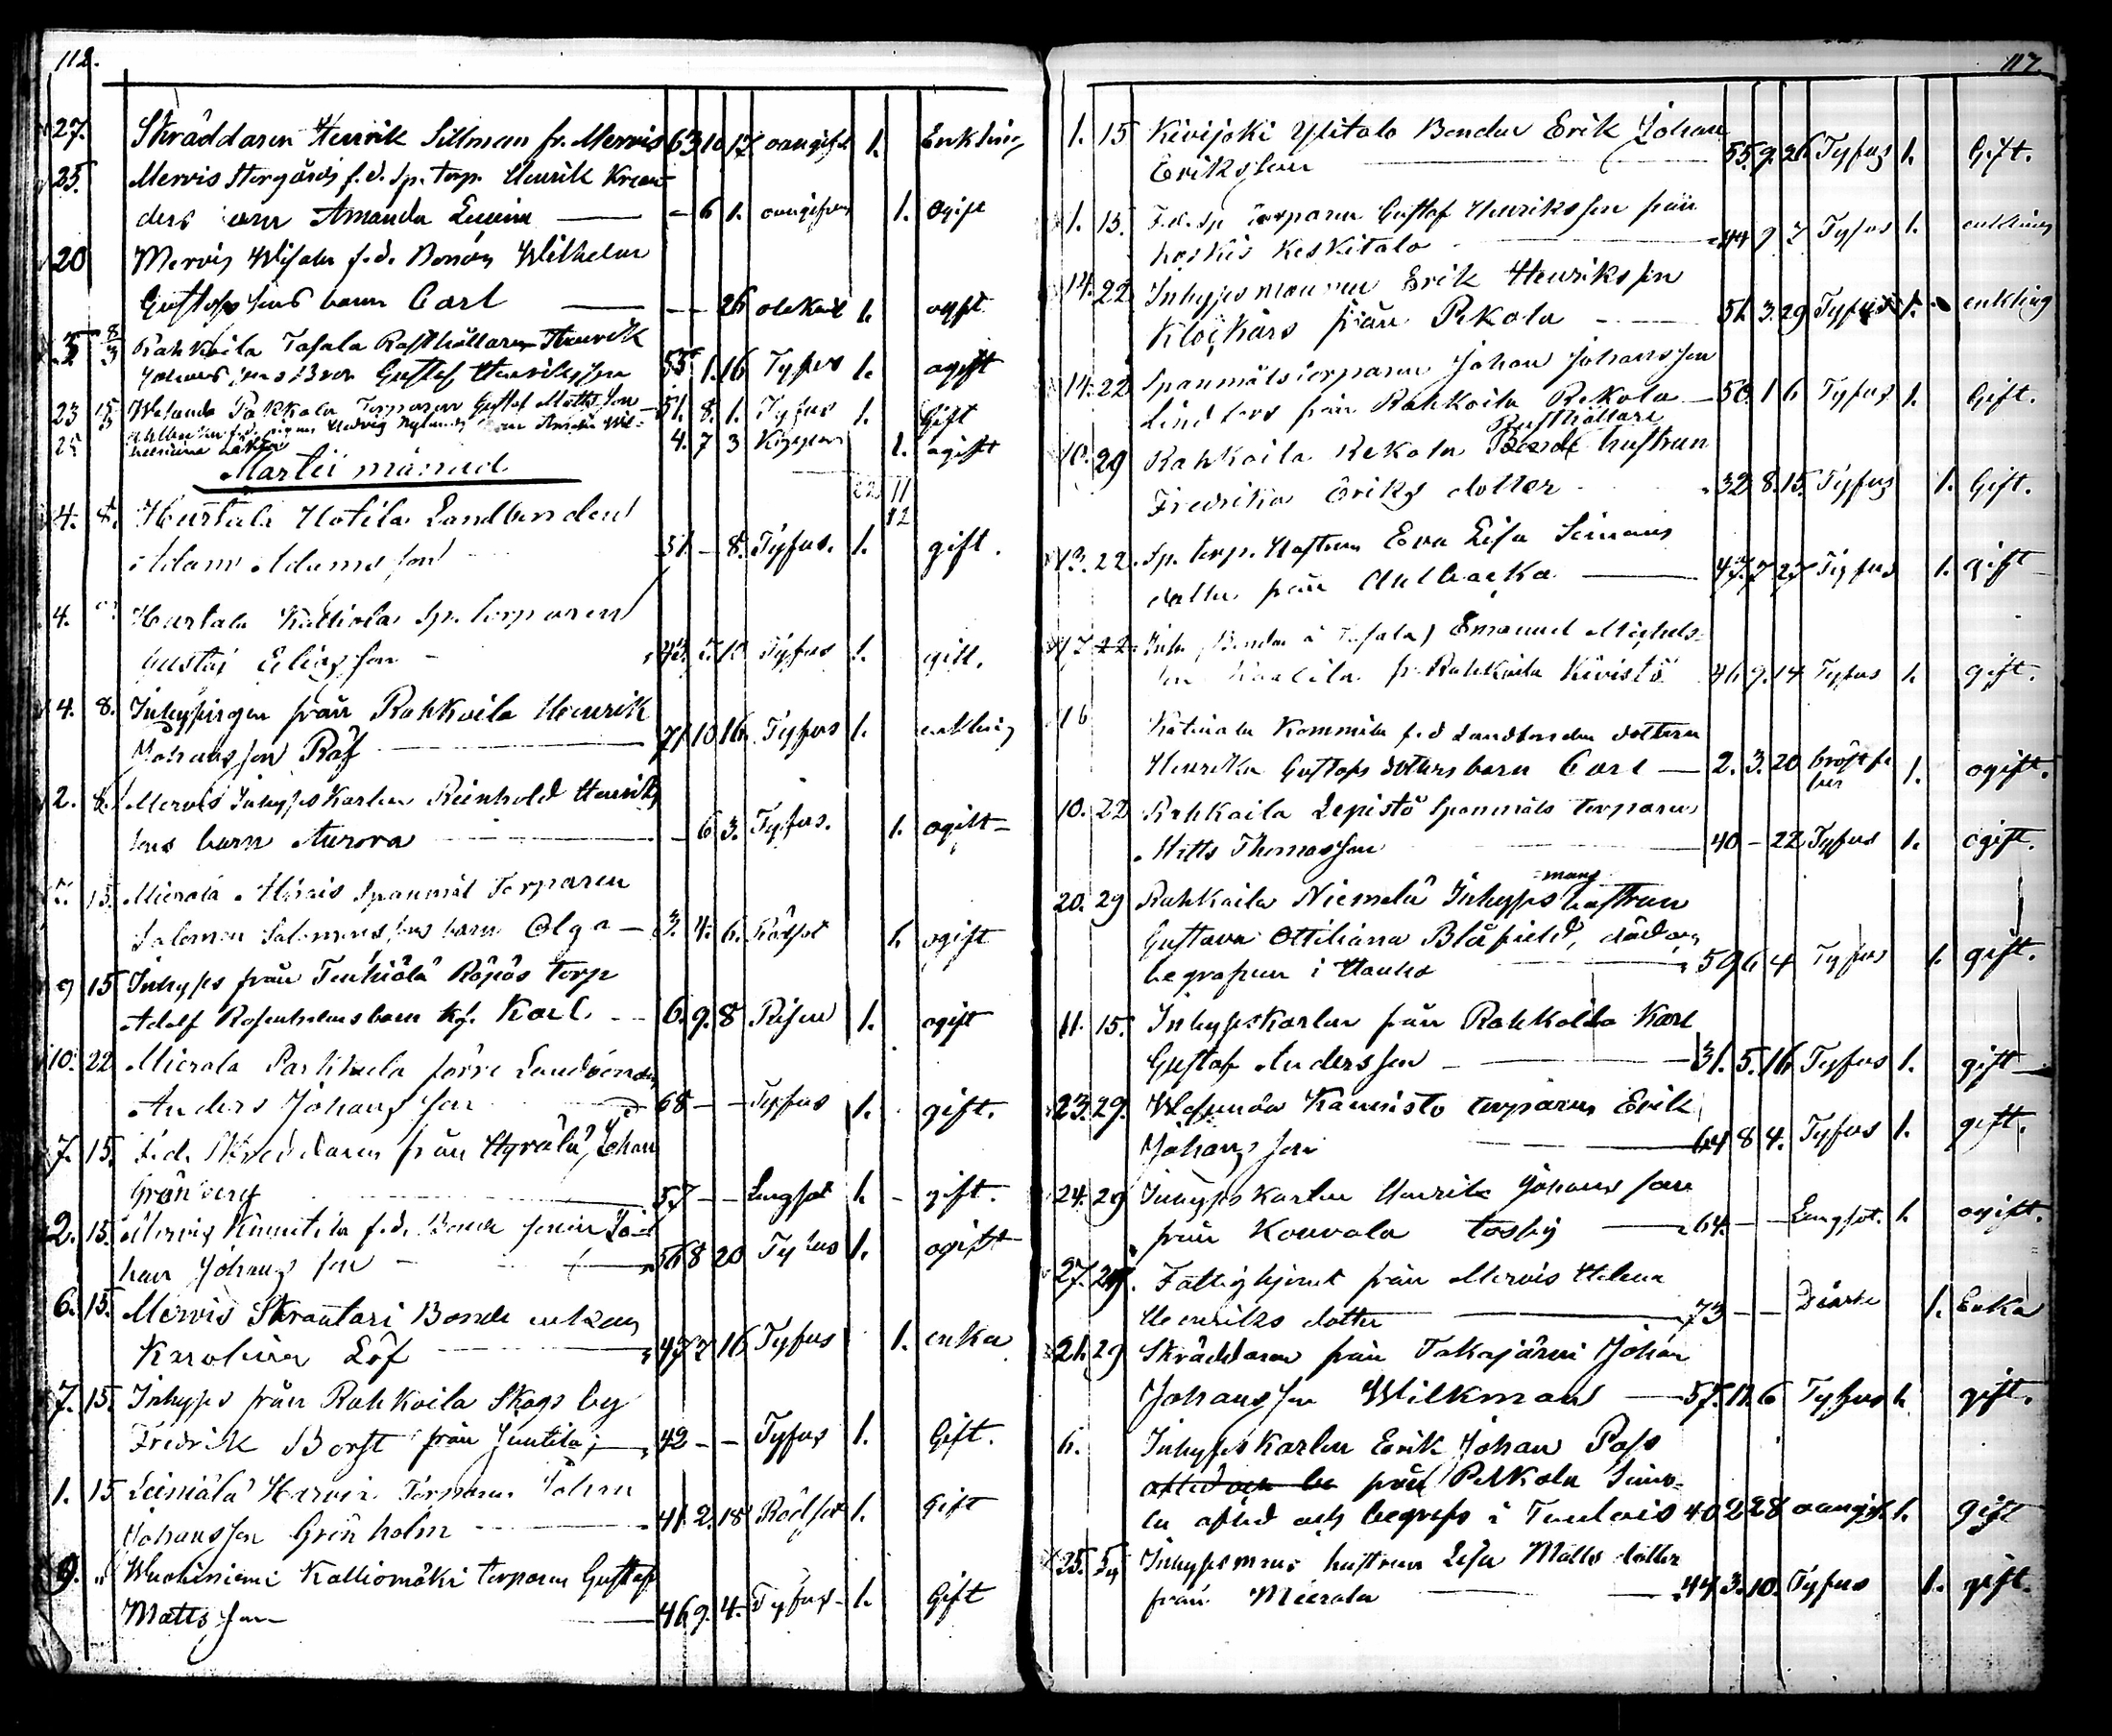 112.
27. Skräddaren Henrik Sillman fr. Mervis 63 10 17 oangifvet 1. Enkling
25. Mervis Storgårds f.d. Sp. torp. Henrik
ders barn Amanda - 6 1. oangifven 1. Ogift
20 Mervis f.d. Bonden Wilhelm
Gustafssons barn Carl - - 26 1. ogift
5 8/3 Rahkoila Tafala Rusthållaren Henrik
Johanssons Bror Gustaf Henriksson 55 1. 16 Tyfus 1. ogift
23 15/3 Pakkala Torparen Gustaf Mattsson 51. 8. 1. Tyfus 1. Gift
25 Hedvig Nylunds barn Amanda Wil- 4. 7 3 Koppor 1. ogift
Martii månad
11
12
4. 8. Hurtala Hotila Landbonden
Adam Adamsson 51. - 8. Tyfus. 1. gift.
4. Hurtala Kalliola Sp. torparen
Gustaf Eliasson 43. 7. 10 Tyfus 1. gift.
4. 8. Inhysingen från Rahkoila Henrik
Johansson Räf 71. 10 16. Tyfus 1. enkling
2. 8. Mervis Inhyses Karlen Reinhold Henriks
sons barn Aurora - 6 3. Tyfus. 1. ogift
15. Mierola Spanmåls Torparen
Salomon Salomonssons barn Olga 3. 4. 6. Rödsot 1. ogift
9 15 Inhyses från Röpös torp
Adolf Rosenholms barn Karl 6. 9. 8 1. ogift
10. 22 Mierola Parkkula förre Landbonden
Anders Johansson 68 - - Tyfus 1. gift.
7. 15. F.d. Skreddaren från Hyrälä, Johan
Grönberg 57 - - Lungsot 1. - gift.
2. 15. Mervis f.d. Bonde sonen Jo-
han Johansson 56 8 20 Tyfus 1. ogift
6. 15. Mervis Skräntari Bonde enkan
Karolina Löf 47 7 16 Tyfus 1. enka
7. 15. Inhyses från Rahkoila Skogs by
Fredrik Borft från Juntila; 42 - - Tyfus 1. Gift.
1. 15 Leiniälä Torparen Johan
Johansson Grönholm 41. 2. 18 Rödsot 1. Gift
9. " Wuohiniemi Kalliomäki torparen Gustaf
Mattsson 46 9. 4. Tyfus 1. Gift
117.
1. 15 Kivijoki Ylitalo Bonden Erik Johan
Eriksson 55. 9. 26 Tyfus 1. Gift.
1. 15. F.d. Sp torparen Gustaf Henriksson från
Keskitalo 44 9 7 Tyfus 1. enkling
14. 22 Inhysesmannen Erik Henriksson
Klockars från Pekola 51. 3. 29 Tyfus 1. enkling
14. 22 Spanmålstorparen Johan Johansson
Lindfors från Rahkoila Rekola 50. 1 6 Tyfus 1. Gift.
Rusthållare
10. 29 Rahkoila Rekola Bonde hustrun
Fredrika Eriks dotter 32 8. 15. Tyfus 1. Gift.
13. 22. Sp. torp. Hustrun Eva Lisa Simons
dotter från Aulbacka 47. 7 27 Tyfus 1. gift
17 22 Inh. (Bonden i Tafala) Emanuel Michels-
son fr. Rahkoila Kivistö 41. 9. 14 Tyfus 1. gift.
16 Katinala Kommila f.d Landbonden dottern
Henrika Gustafs dotters barn Carl 2. 3. 20 bröstfe
ber 1. ogift.
10. 22 Rahkoila Lepistö Spanmåls torparen
Matts Thomasson 40 - 22 Tyfus 1. ogift.
mans
20. 29 Rahkoila Niemelä Inhyses hustrun
Gustava Ottiliana Blåfield, död och
begrafven i Hauho 59 6 4 Tyfus 1. gift.
11. 15. Inhyseskarlen från Rahkoila Karl
Gustaf Andersson 31. 5. 16. Tyfus 1. gift
23. 29. Kaunisto torparen Erik
Johansson 64 8 4. Tyfus 1. gift.
24. 29 Inhyses karlen Henrik Johansson
från Kouvala 64. - - Lungsot. 1. ogift.
27. 29. Fattighjonet från Mervis Helena
Henriks dotter 73 - - 1. Enka
21. 29 Skräddaren från Takajärvi Johan
Johansson Wilkman 57. 11. 6 Tyfus 1. gift.
6. Inhyses Karlen Erik Johan Pass
från Pelkola
afled och begrafs i Tuulois 40 2 28 oangif. 1. gift
25. Inhysesmans hustrun Lisa Matts dotter
från Mierola 44 3. 10. Tyfus 1. gift.